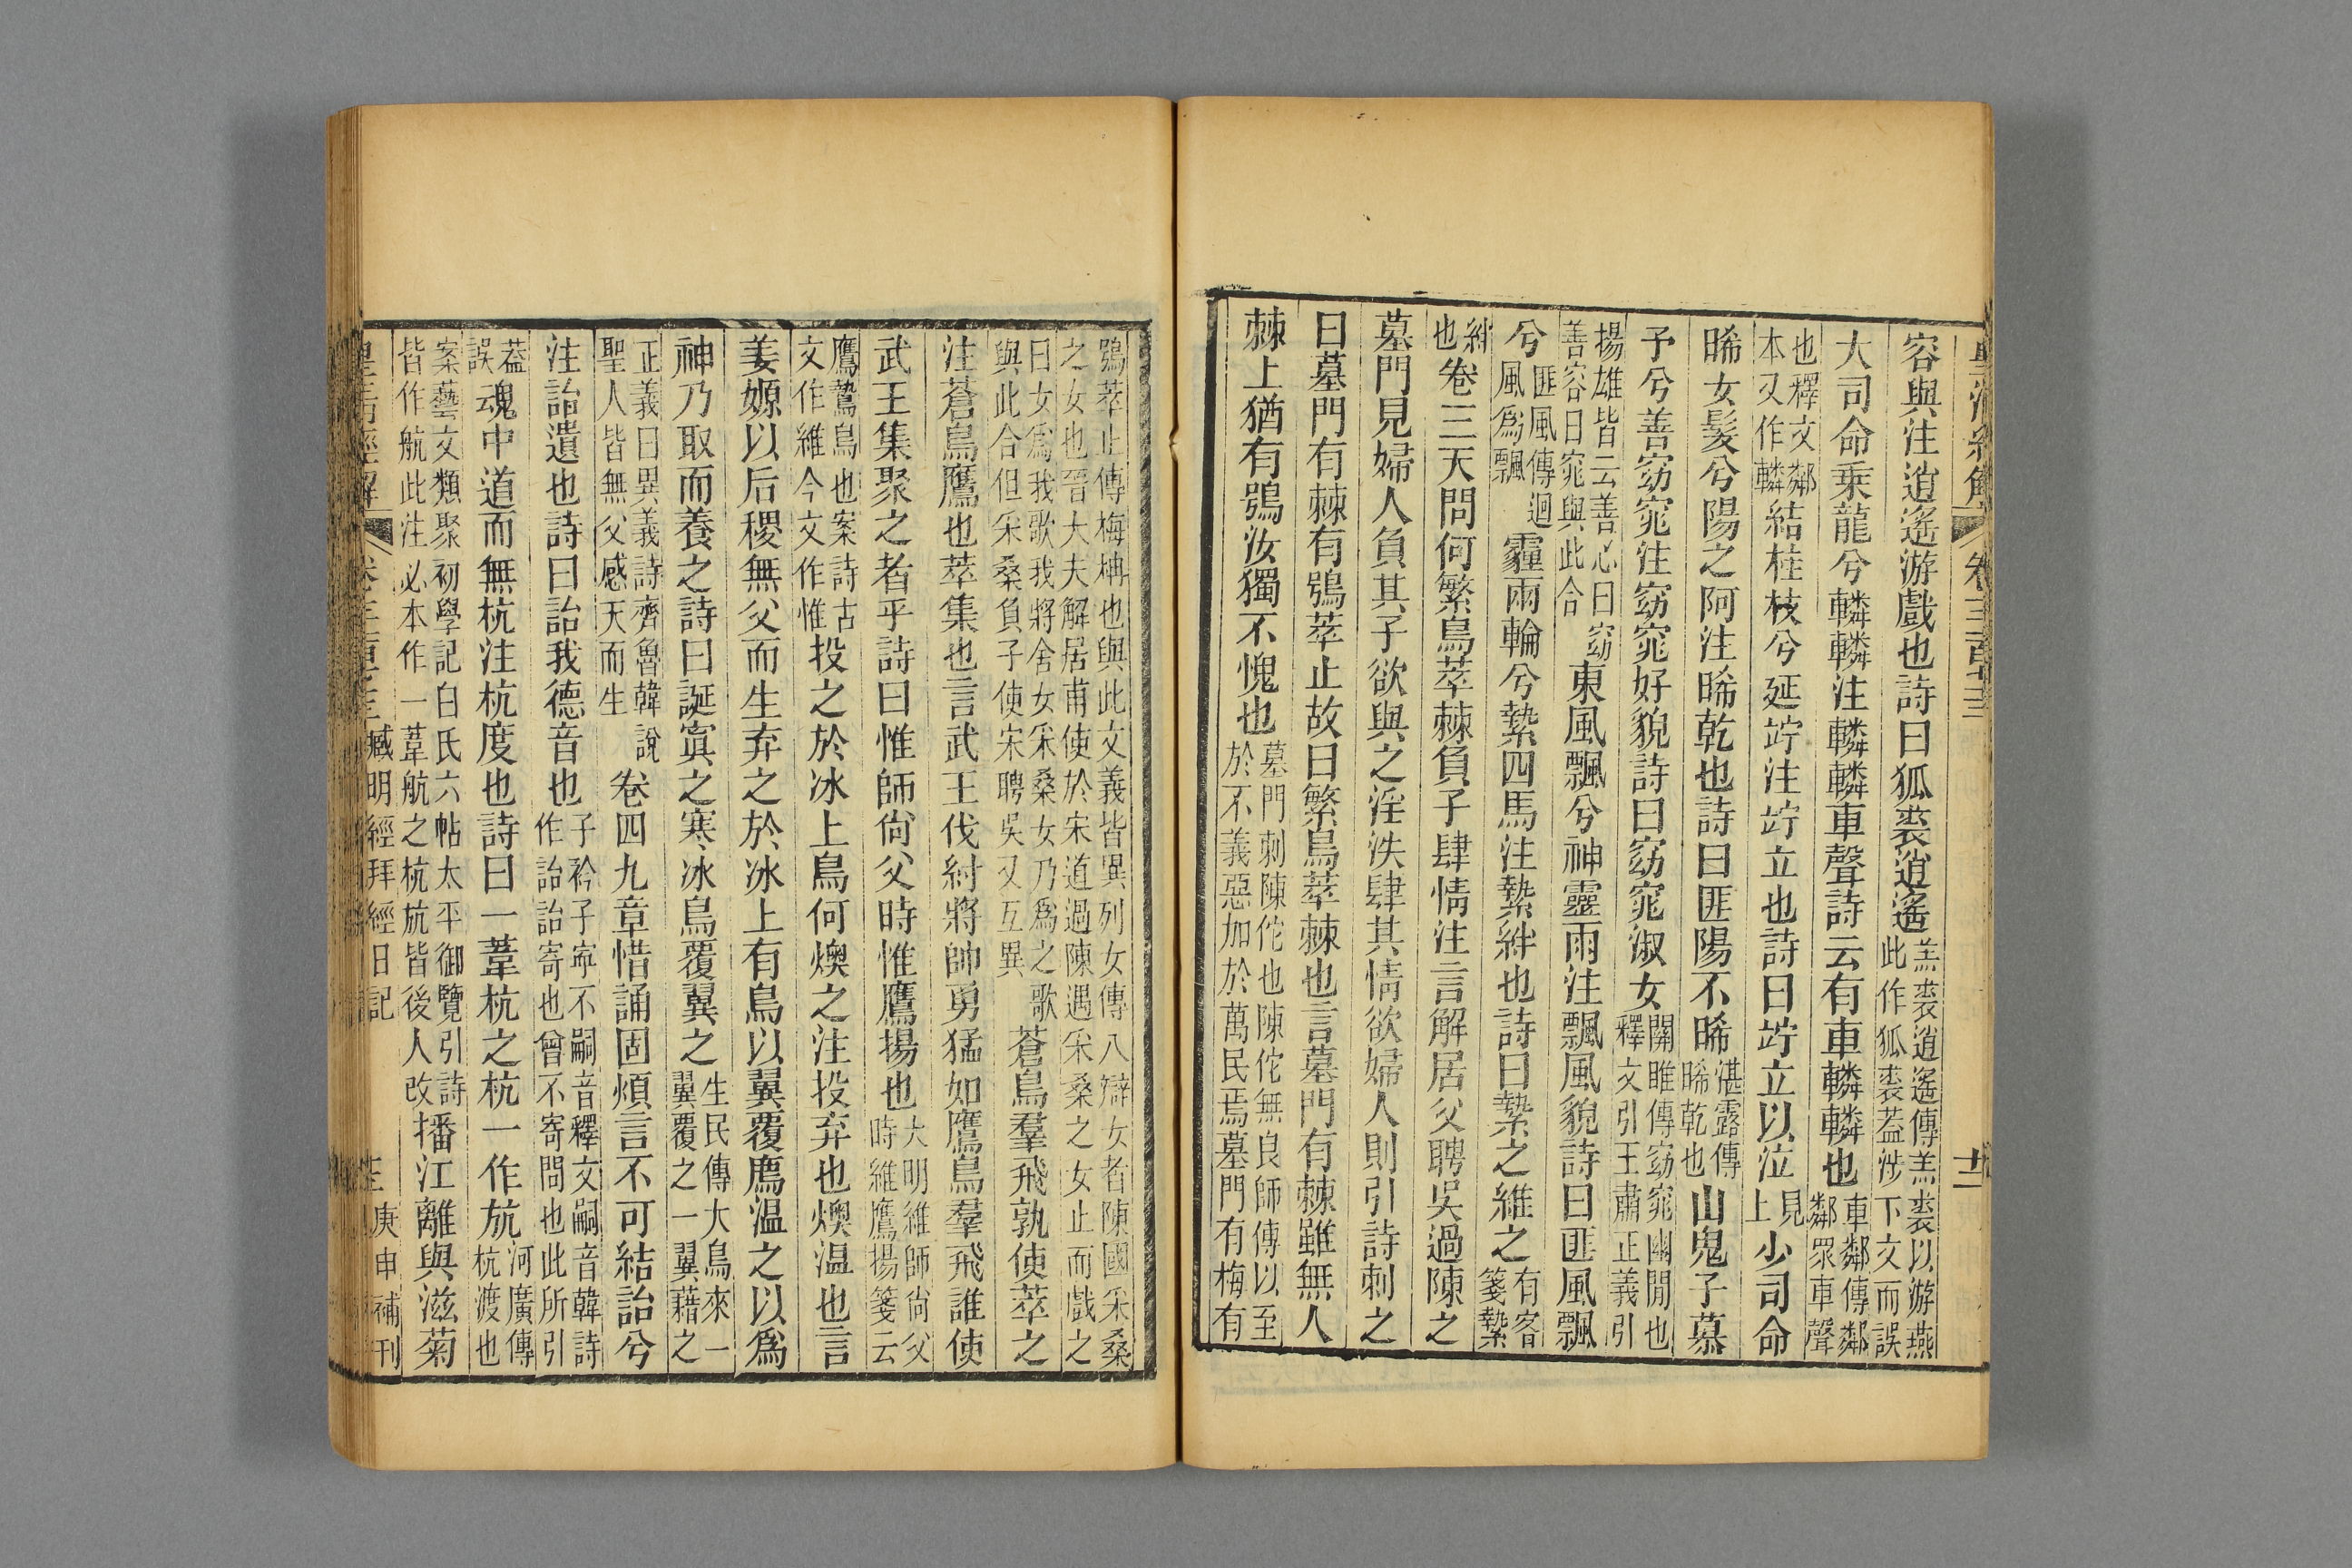 皇清經解
卷
十二
容與注逍遙游戲也詩曰狐裘逍遙羔裘逍遙傳羔裘以游燕此作狐裘葢涉下文而誤
大司命乘龍兮轔轔注轔轔車聲詩云有車轔轔也車鄰傳鄰鄰衆車聲
也釋文鄰本又作轔結桂枝兮延竚注竚立也詩曰竚立以泣見上少司命
晞女髮兮陽之阿注晞乾也詩曰匪陽不晞湛露傳晞乾也山鬼子慕
予兮善窈窕注窈窕好貌詩曰窈窕淑女關雎傳窈窕幽閒也釋文引王肅正義引
揚雄皆云善心曰窈善容曰窕與此合東風飄兮神靈雨注飄風貌詩曰匪風飄
兮匪風傳迴風爲飄霾雨輪兮縶四馬注縶絆也詩曰縶之維之有客箋縶
絆也卷三天問何繁鳥萃棘負子肆情注言解居父聘吳過陳之
墓門見婦人負其子欲與之淫泆肆其情欲婦人則引詩刺之
曰墓門有棘有鴞萃止故曰繁鳥萃棘也言墓門有棘雖無人
棘上猶有鴞汝獨不愧也墓門刺陳佗也陳佗無良師傅以至於不義惡加於萬民焉墓門有梅有
鴞萃止傳梅柟也與此文義皆異列女傳八辯女者陳國采桑之女也晉大夫解居甫使於宋道過陳遇采桑之女止而戲之
曰女爲我歌我將舍女采桑女乃爲之歌與此合但采桑負子使宋聘吳又互異蒼鳥羣飛孰使萃之
注蒼鳥鷹也萃集也言武王伐紂將帥勇猛如鷹鳥羣飛誰使
武王集聚之者乎詩曰惟師尙父時惟鷹揚也大明維師尙父時維鷹揚箋云
鷹鷙鳥也案詩古文作維今文作惟投之於冰上鳥何燠之注投弃也燠温也言
姜嫄以后稷無父而生弃之於冰上有鳥以翼覆薦温之以爲
神乃取而養之詩曰誕寘之寒冰鳥覆翼之生民傳大鳥來一翼覆之一翼藉之
正義曰異義詩齊魯韓說聖人皆無父感天而生卷四九章惜誦固煩言不可結詒兮
注詒遺也詩曰詒我德音也子衿子寜不嗣音釋文嗣音韓詩作詒詒寄也曾不寄問也此所引
葢誤魂中道而無杭注杭度也詩曰一葦杭之杭一作斻河廣傳杭渡也
案藝文類聚初學記白氏六帖太平御覽引詩皆作航此注必本作一葦航之杭斻皆後人改播江離與滋菊
皇清經解
臧明經拜經日記
庚申補刊